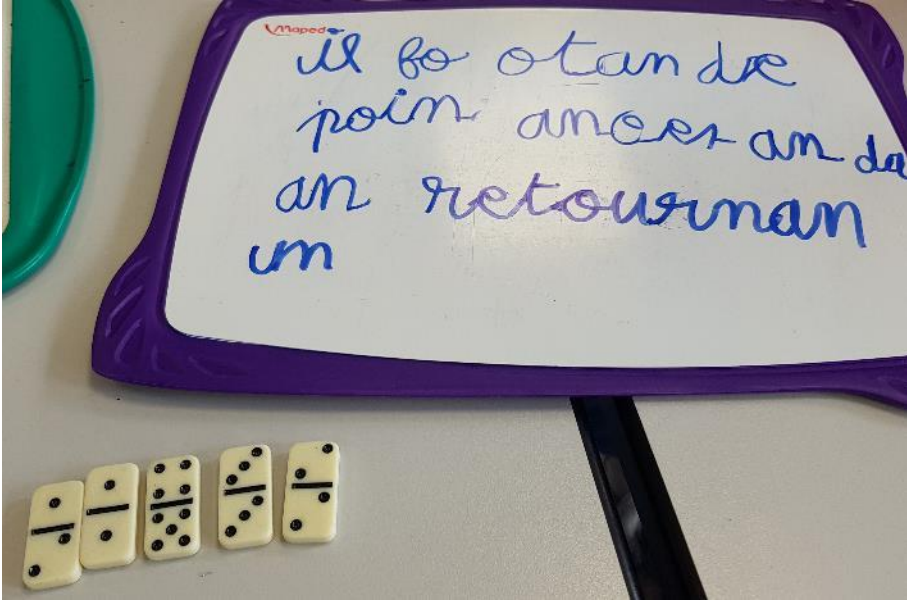 Maped
il fo otan de
poin an an da
an retournan
um